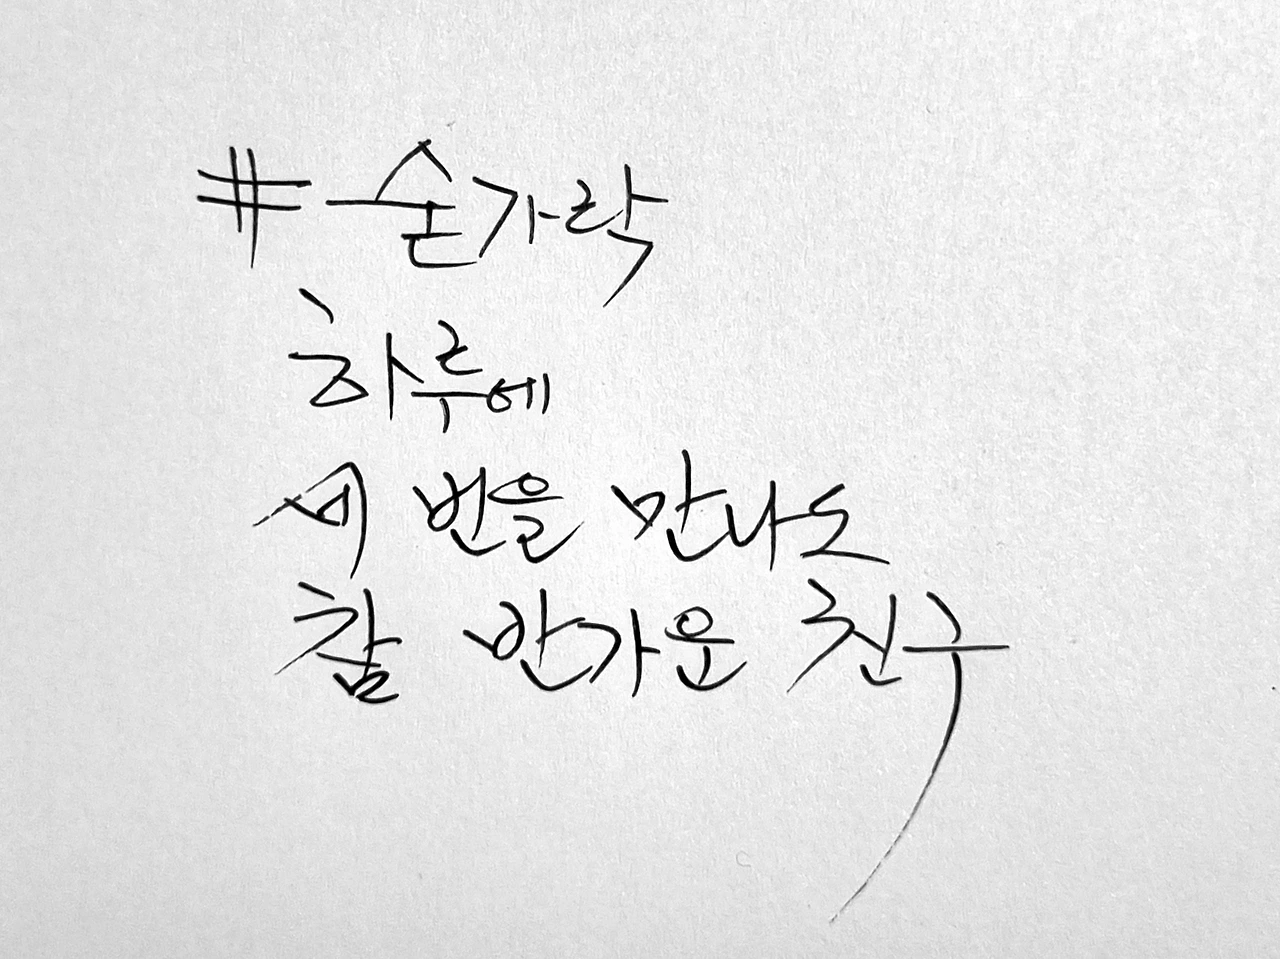 #숟가락
하루에
세 번을 만나도
참 반가운 친구